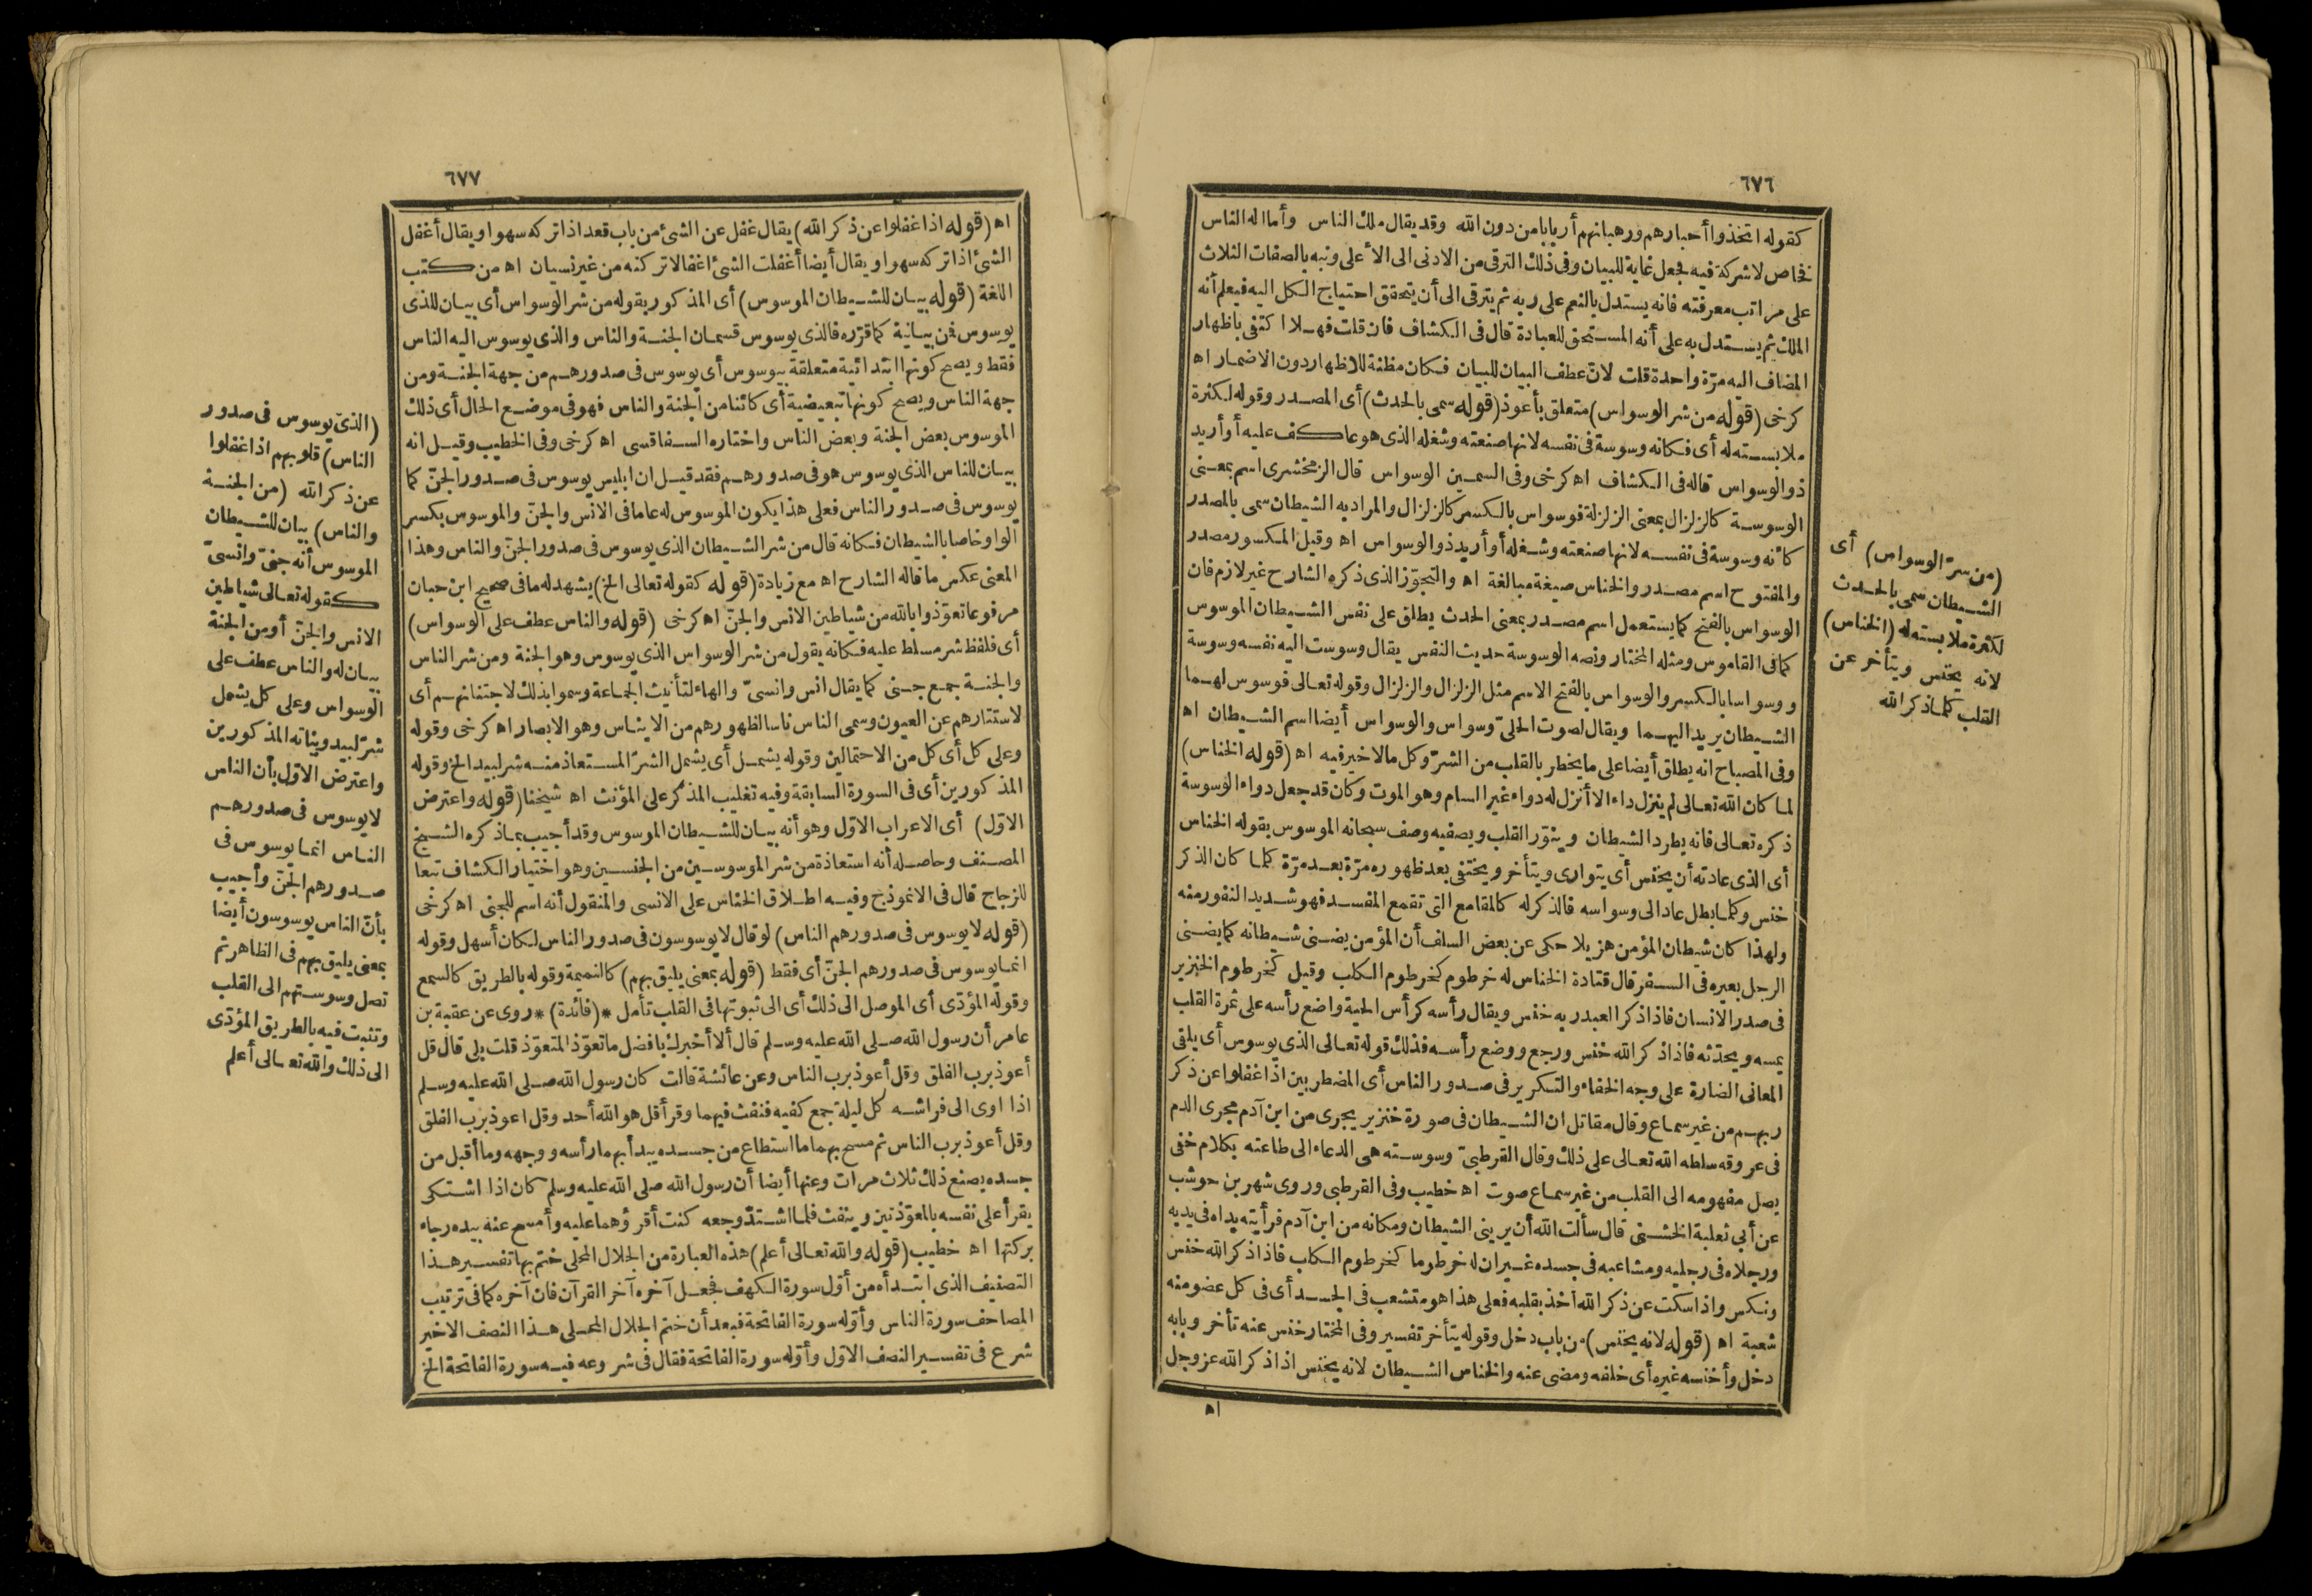 ٦٧٦
كقوله اتخذوا أحبارهم ورهبانهم أربابا من دون الله وقد يقال ملك الناس وأما اله الناس
فخاص لا شركة فيه فجعل غاية للبيان وفى ذلك الترقى من الادنى الى الأعلى ونبه بالصفات الثلاث
على مراتب معرفته فانه يستدل بالنعم على ربه ثم يترقى الى أن يتحقق احتياج الكل اليه فيعلم أنه
الملك ثم يستدل به على أنه المستحق للعبادة قال فى الكشاف فان قلت فهلا اكتفى باظهار
المضاف اليه مرّة واحدة قلت لانّ عطف البيان للبيان فكان مظنة للاظهار دون الاضمار اه
كرخى (قوله من شر الوسواس) متعلق بأعوذ (قوله سمى بالحدث) أى المصدر وقوله لكثرة
ملابسته له أى فكانه وسوسة فى نفسه لانها صنعته وشغله الذى هو عاكف عليه أو أريد
ذو الوسواس قاله فى الكشاف اه كرخى وفى السمين الوسواس قال الزمخشرى اسم بمعنى
الوسوسة كالزلزال بمعنى الزلزلة فوسواس بالكسر كالزلزال والمراد به الشيطان سمى بالمصدر
كأنه وسوسة فى نفسه لانها صنعته وشغله أو أريد ذو الوسواس اه وقيل المكسور مصدر
والمفتوح اسم مصدر والخناس صيغة مبالغة اه والتجوّز الذى ذكره الشارح غير لازم فان
الوسواس بالفتح كما يستعمل اسم مصدر بمعنى الحدث يطلق على نفس الشيطان الموسوس
كما فى القاموس ومثله المختار ونصه الوسوسة حديث النفس يقال وسوست اليه نفسه وسوسة
ووسواسا بالكسر والوسواس بالفتح الاسم مثل الزلزال والزلزال وقوله تعالى فوسوس لهما
الشيطان يريد اليهما ويقال لصوت الحلىّ وسواس والوسواس أيضا اسم الشيطان اه
وفى المصباح انه يطلق أيضا على ما يخطر بالقلب من الشرّ وكل ما لا خير فيه اه (قوله الخناس)
لما كان الله تعالى لم ينزل داء الا أنزل له دواء غير السام وهو الموت وكان قد جعل دواء الوسوسة
ذكره تعالى فانه يطرد الشيطان وينوّر القلب ويصفيه وصف سبحانه الموسوس بقوله الخناس
أى الذى عادته أن يخنس أى يتوارى ويتأخر ويختفى بعد ظهوره مرّة بعد مرّة كلما كان الذكر
خنس وكلما بطل عاد الى وسواسه فالذكر له كالمقامع التى تقمع المفسد فهو شديد النفور منه
ولهذا كان شيطان المؤمن هزيلا حكى عن بعض السلف أن المؤمن يضنى شيطانه كما يضنى
الرجل بعيره فى السفر قال قتادة الخناس له خرطوم كخرطوم الكلب وقيل كخرطوم الخنزير
فى صدر الانسان فاذا ذكر العبد ربه خنس ويقال رأسه كرأس الحية واضع رأسه على ثمرة القلب
يمسه ويحدّثه فاذا ذكر الله خنس ورجع ووضع رأسه فذلك قوله تعالى الذى يوسوس أى يلقى
المعانى الضارة على وجه الخفاء والتكرير فى صدور الناس أى المضطربين اذا غفلوا عن ذكر
ربهم من غير سماع وقال مقاتل ان الشيطان فى صورة خنزير يجرى من ابن آدم مجرى الدم
فى عروقه سلطه الله تعالى على ذلك وقال القرطبىّ وسوسته هى الدعاء الى طاعته بكلام خفى
يصل مفهومه الى القلب من غير سماع صوت اه خطيب وفى القرطبى وروى شهر بن حوشب
عن أبى ثعلبة الخشنى قال سألت الله أن يرينى الشيطان ومكانه من ابن آدم فرأيته يداه فى يديه
ورجلاه فى رجليه ومشاعبه فى جسده غير ان له خرطوما كخرطوم الكلب فاذا ذكر الله خنس
ونكس واذا سكت عن ذكر الله أخذ بقلبه فعلى هذا هو متشعب فى الجسد أى فى كل عضو منه
شعبة اه (قوله لانه يخنس) من باب دخل وقوله يتأخر تفسير وفى المختار خنس عنه تأخر وبابه
دخل وأخنسه غيره أى خلفه ومضى عنه والخناس الشيطان لانه يخنس اذا ذكر الله عز وجل
اه
(من شرّ الوسواس) أى
الشيطان سمى بالحدث
لكثرة ملابسته له (الخناس)
لانه يخنس ويتأخر عن
القلب كلما ذكر الله
٦٧٧
اه (قوله اذا غفلوا عن ذكر الله) يقال غفل عن الشئ من باب قعد اذا تركه سهوا ويقال أغفل
الشئ اذا تركه سهوا ويقال أيضا أغفلت الشئ اغفالا تركته من غير نسيان اه من كتب
اللغة (قوله بيان للشيطان الموسوس) أى المذكور بقوله من شر الوسواس أى بيان للذى
يوسوس فمن بيانية كما قرّره فالذى يوسوس قسمان الجنة والناس والذى يوسوس اليه الناس
فقط ويصح كونها ابتدائية متعلقة بيوسوس أى يوسوس فى صدورهم من جهة الجنة ومن
جهة الناس ويصح كونها تبعيضية أى كائنا من الجنة والناس فهو فى موضع الحال أى ذلك
الموسوس بعض الجنة وبعض الناس واختاره السفاقسى اه كرخى وفى الخطيب وقيل انه
بيان للناس الذى يوسوس هو فى صدورهم فقد قيل ان ابليس يوسوس فى صدور الجنّ كما
يوسوس فى صدور الناس فعلى هذا يكون الموسوس له عاما فى الانس والجنّ والموسوس بكسر
الواو خاصا بالشيطان فكانه قال من شر الشيطان الذى يوسوس فى صدور الجنّ والناس وهذا
المعنى عكس ما قاله الشارح اه مع زيادة (قوله كقوله تعالى الخ) يشهد له ما فى صحيح ابن حبان
مرفوعا تعوّذوا بالله من شياطين الانس والجنّ اه كرخى (قوله والناس عطف على الوسواس)
أى فلفظ شر مسلط عليه فكانه يقول من شر الوسواس الذى يوسوس وهو الجنة ومن شر الناس
والجنة جمع جنى كما يقال انس وانسىّ والهاء لتأنيث الجماعة وسموا بذلك لاجتنانهم أى
لاستتارهم عن العيون وسمى الناس ناسا لظهورهم من الايناس وهو الابصار اه كرخى وقوله
وعلى كل أى كل من الاحتمالين وقوله يشمل أى يشمل الشرّ المستعاذ منه شر لبيد الخ وقوله
المذكورين أى فى السورة السابقة وفيه تغليب المذكر على المؤنث اه شيخنا (قوله واعترض
الاوّل) أى الاعراب الاوّل وهو أنه بيان للشيطان الموسوس وقد أجيب بما ذكره الشيخ
المصنف وحاصله أنه استعاذة من شر الموسوسين من الجنسين وهو اختيار الكشاف تبعا
للزجاج قال فى الانموذج وفيه اطلاق الخناس على الانسى والمنقول أنه اسم للجنى اه كرخى
(قوله لا يوسوس فى صدورهم الناس) لو قال لا يوسوسون فى صدور الناس لكان أسهل وقوله
انما يوسوس فى صدورهم الجنّ أى فقط (قوله بمعنى يليق بهم) كالنميمة وقوله بالطريق كالسمع
وقوله المؤدّى أى الموصل الى ذلك أى الى ثبوتها فى القلب تأمل *(فائدة)* روى عن عقبة بن
عامر أن رسول الله صلى الله عليه وسلم قال ألا أخبرك بافضل ما تعوّذ المتعوّذ قلت بلى قال قل
أعوذ برب الفلق وقل أعوذ برب الناس وعن عائشة قالت كان رسول الله صلى الله عليه وسلم
اذا اوى الى فراشه كل ليلة جمع كفيه فنفث فيهما وقرأ قل هو الله أحد وقل اعوذ برب الفلق
وقل أعوذ برب الناس ثم مسح بهما ما استطاع من جسده يبدأ بهما رأسه ووجهه وما أقبل من
جسده يصنع ذلك ثلاث مرات وعنها أيضا أن رسول الله صلى الله عليه وسلم كان اذا اشتكى
يقرأ على نفسه بالمعوّذتين وينفث فلما اشتدّ وجعه كنت أقرؤهما عليه وأمسح عنه بيده رجاء
بركتها اه خطيب (قوله والله تعالى أعلم) هذه العبارة من الجلال المحلى ختم بها تفسير هذا
التصنيف الذى ابتدأه من أوّل سورة الكهف فجعل آخره آخر القرآن فان آخره كما فى ترتيب
المصاحف سورة الناس وأوّله سورة الفاتحة فبعد أن ختم الجلال المحلى هذا النصف الاخير
شرع فى تفسير النصف الاوّل وأوّله سورة الفاتحة فقال فى شروعه فيه سورة الفاتحة الخ
(الذى يوسوس فى صدور
الناس) قلوبهم اذا غفلوا
عن ذكر الله (من الجنة
والناس) بيان للشيطان
الموسوس أنه جنىّ وانسىّ
كقوله تعالى شياطين
الانس والجنّ أو من الجنة
بيان له والناس عطف على
الوسواس وعلى كل يشمل
شرّ لبيد وبناته المذكورين
واعترض الاوّل بأن الناس
لا يوسوس فى صدورهم
الناس انما يوسوس فى
صدورهم الجنّ وأجيب
بأنّ الناس يوسوسون أيضا
بمعنى يليق بهم فى الظاهر ثم
تصل وسوستهم الى القلب
وتثبت فيه بالطريق المؤدّى
الى ذلك والله تعالى أعلم